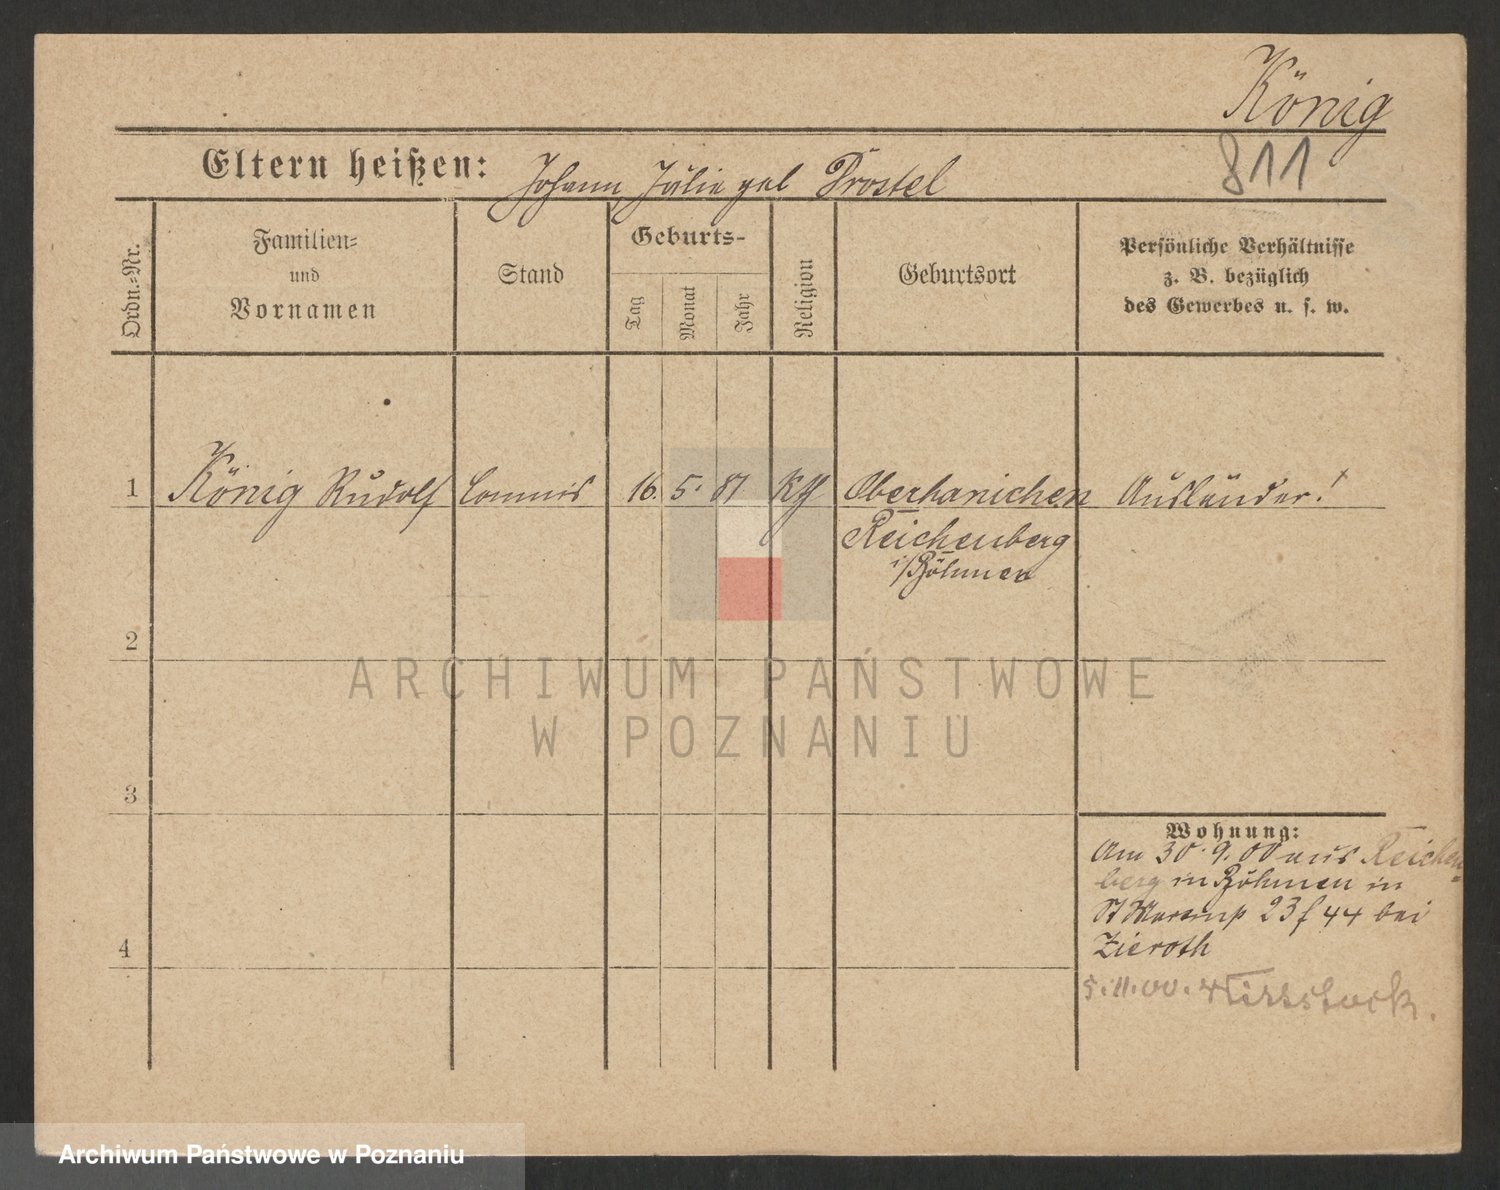 König
811
Eltern heißen: Johann, Julie geb Prostel
Ordn.=Nr.
Familien=
und
Vornamen
Stand
Geburts-
Tag
Monat
Jahr
Religion
Geburtsort
Persönliche Verhältnisse
z. B. bezüglich
des Gewerbes u. s. w.
1 König Rudolf Commis 16. 5. 81 kth Oberhanichen Ausländer!
Reichenberg
i/Böhmen
2
3
4
Wohnung:
Am 30. 9. 00 aus Reichen-
berg in Böhmen in
St 23 44 bei
Zieroth
5. 11. 00.
ARCHIWUM PAŃSTWOWE
W POZNANIU
Archiwum Państwowe w Poznaniu